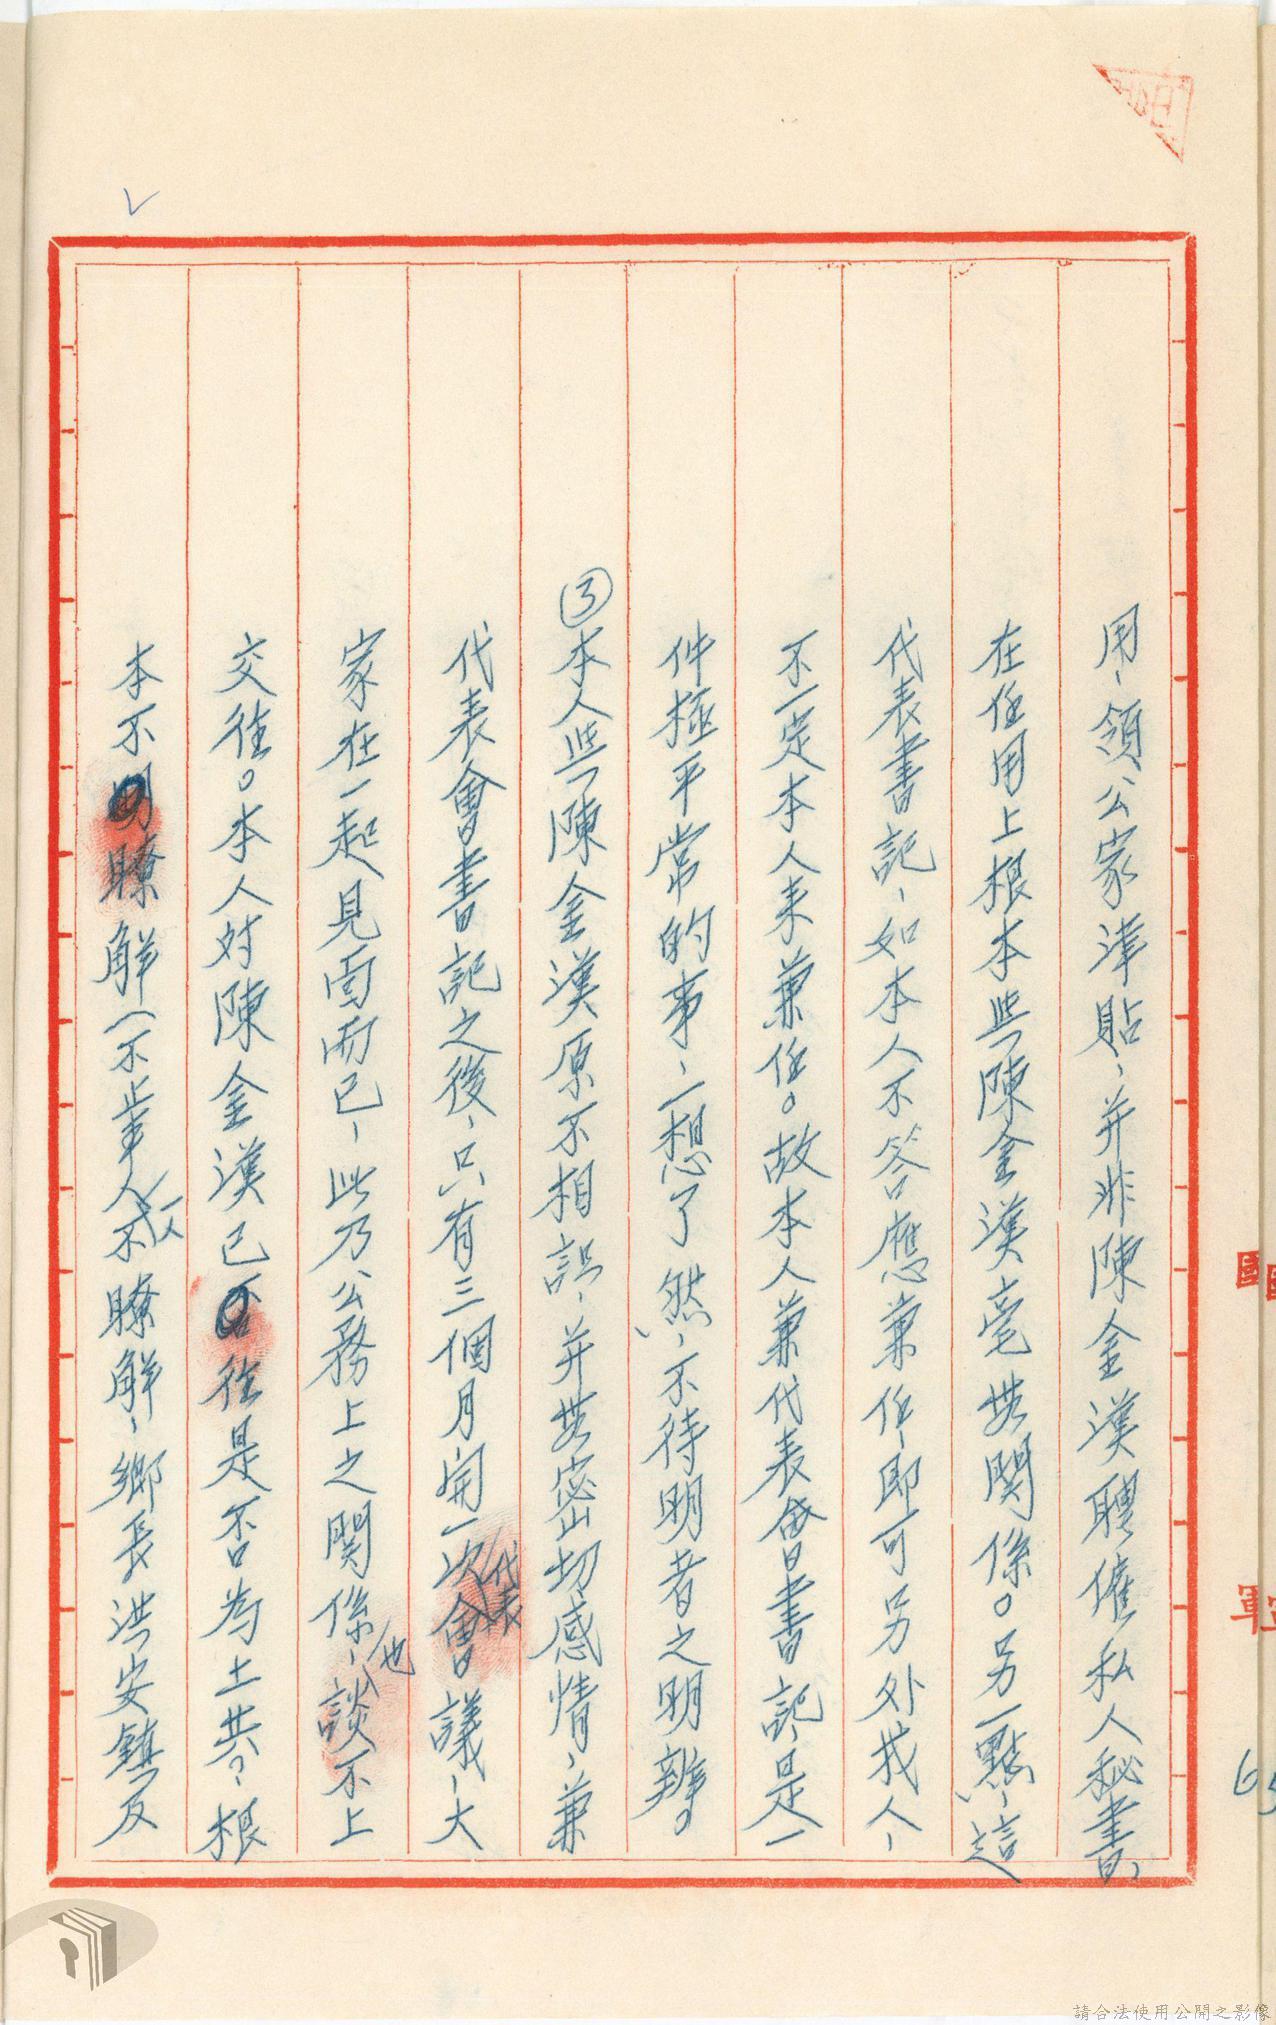 用、領公家津貼、并非陳金漢聘僱私人秘書、
在任用上根本與陳金漢毫無関係。另一點、這
代表書記、如本人不答應兼任、即可另外找人、
不一定本人来兼任。故本人兼代表會書記、是一
件極平常的事、一想了然、不待明者之明辨。
③本人與陳金漢原不相識、并無密切感情、兼
代表會書記之後、只有三個月開一次代表會議、大
家在一起見面而已、此乃公務上之関係、也談不上
交往。本人対陳金漢已往是否為土共、根
本不瞭解(不止本人不瞭解、鄉長洪安鎮及
65
請合法使用公開之影像